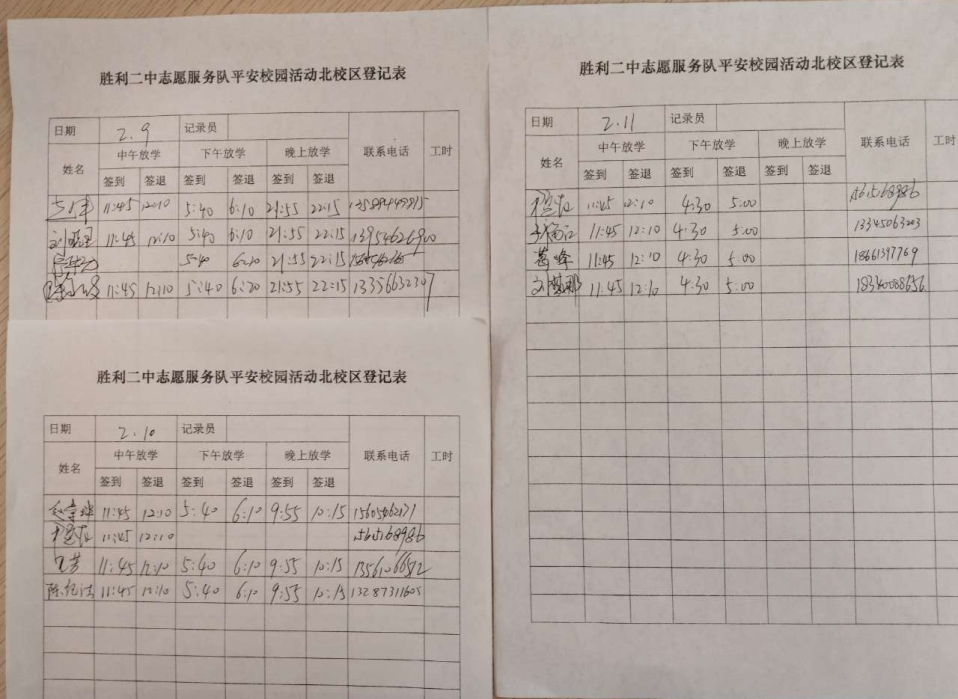 胜利二中志愿服务队平安校园活动北校区登记表
日期 2.9 记录员
姓名 中午放学 下午放学 晚上放学 联系电话 工时
签到 签退 签到 签退 签到 签退
11:45 12:10 5:40 6:10 21:55 22:15
11:45 12:10 5:40 6:10 21:55 22:15 13954626900
5:40 6:10 21:55 22:15
11:45 12:10 5:40 6:20 21:55 22:15 13356632307
胜利二中志愿服务队平安校园活动北校区登记表
日期 2.10 记录员
姓名 中午放学 下午放学 晚上放学 联系电话 工时
签到 签退 签到 签退 签到 签退
11:45 12:10 5:40 6:10 9:55 10:15
11:45 12:10 15615168986
11:45 12:10 5:40 6:10 9:55 10:15
11:45 12:10 5:40 6:10 9:55 10:15 13287311605
胜利二中志愿服务队平安校园活动北校区登记表
日期 2.11 记录员
姓名 中午放学 下午放学 晚上放学 联系电话 工时
签到 签退 签到 签退 签到 签退
11:45 12:10 4:30 5:00 15615168986
11:45 12:10 4:30 5:00 13345063203
葛峰 11:45 12:10 4:30 5:00 18661397769
11:45 12:10 4:30 5:00 18340088656